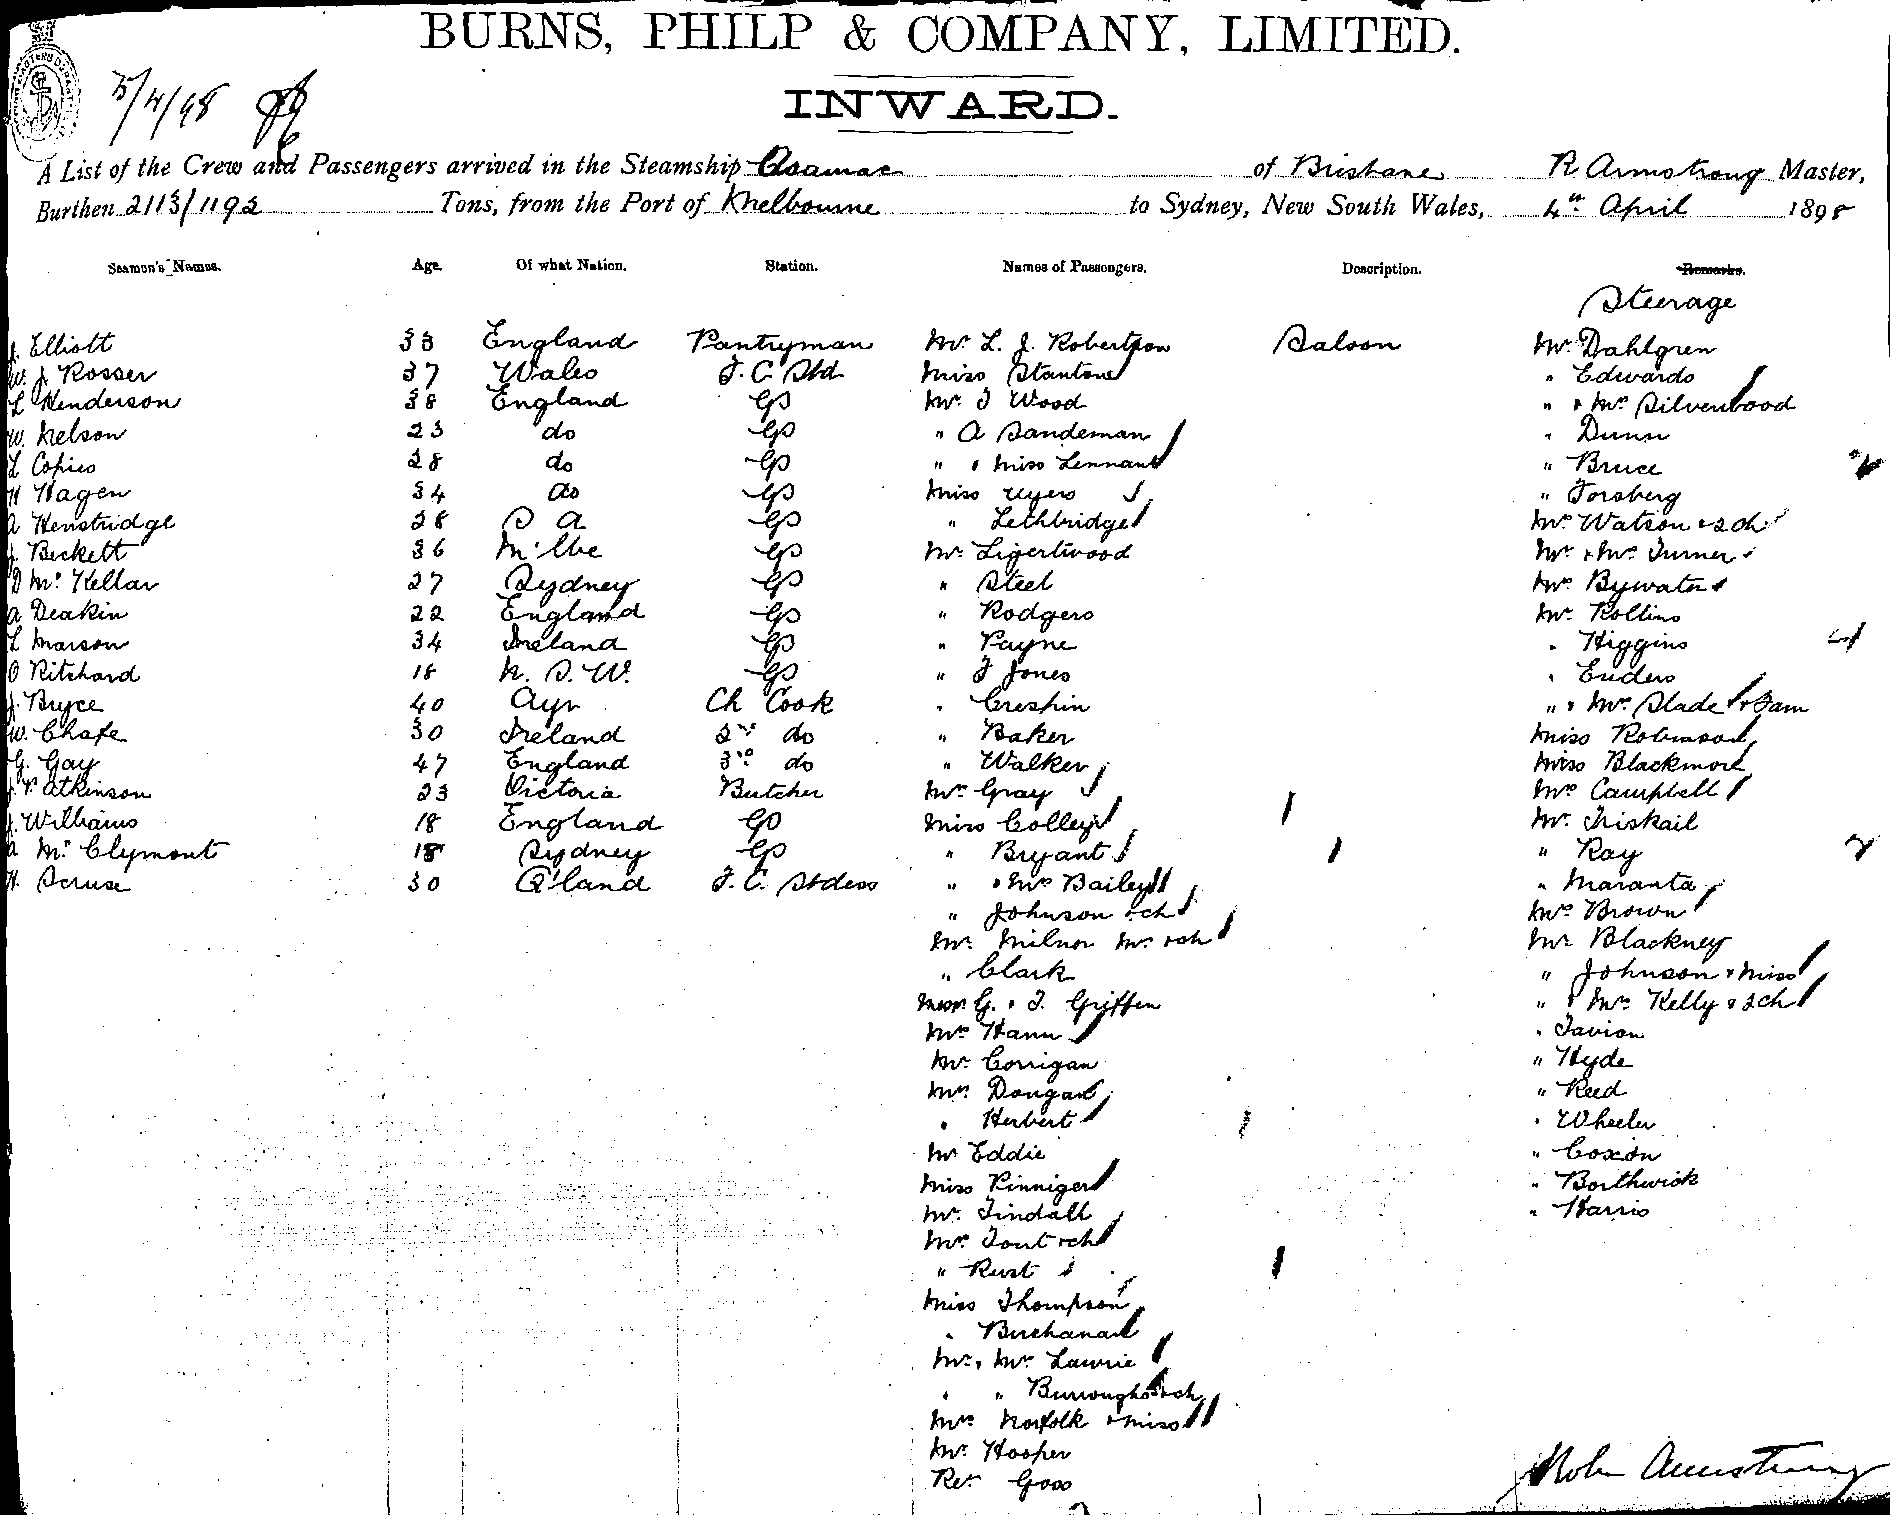 BURNS, PHILP & COMPANY, LIMITED.
5/4/98
INWARD.
A List of the Crew and Passengers arrived in the Steamship Aramac of Brisbane R Armstrong Master,
Burthen 2113/1192 Tons, from the Port of Melbourne to Sydney, New South Wales, 4th April 1898
Seamen's Names. Age. Of what Nation. Station. Names of Passengers. Description. Remarks.
Steerage
J. Elliott 33 England Pantryman Mr L. J. Robertson Saloon Mr Dahlgren
W. J Rosser 37 Wales F. C. Std Miss Stanton " Edwards
L Henderson 38 England " Mr T Wood " & Mrs Silverwood
W. Nelson 23 do " " A Sandeman " Dunn
L Copies 28 do " " & Miss Lennant " Bruce
H Hagen 34 do " Miss Uyers " Forsberg
A Henstridge 28 S A " " Lethbridge Mrs Watson & 2 ch
J. Beckett 36 M'lbe " Mr Ligertwood Mr & Mrs Turner
D McKellar 27 Sydney " " Steel Mrs Bywater
A Deakin 22 England " " Rodgers Mr Rollins
L Marson 34 Ireland " " Payne " Higgins
O Ritchard 18 N. S. W. " " F Jones " Enders
J. Bryce 40 Ayr Ch Cook " Creshin " & Mrs Slade & Fam
W. Chafe 30 Ireland 2nd do " Baker Miss Robinson
G. Gay 47 England 3rd do " Walker Miss Blackmore
J. Atkinson 23 Victoria Butcher Mrs Gray Mrs Campbell
J. Williams 18 England " Miss Colley Mr Triskail
A McClymont 18 Sydney " " Bryant " Ray
H. Scruse 30 Q'land F. C. Stdess " & Mrs Bailey " Maranta
" Johnson & ch Mrs Brown
Mr Milnor Mrs & ch Mr Blackney
" Clark " Johnson & Miss
Messrs G. & T. Griffen " & Mrs Kelly & 2 ch
Mrs Hann " Tavion
Mr Corrigan " Hyde
Mrs Dougan " Reed
" Herbert " Wheeler
Mr Eddie " Coxon
Miss Pinniger " Borthwick
Mr Tindall " Harris
Mrs Tout & ch
" Rust
Miss Thompson
" Buchanan
Mr & Mrs Lawrie
" " Burroughs & ch
Mrs Norfolk & Miss
Mr Hooper
Rev Goss
Armstrong